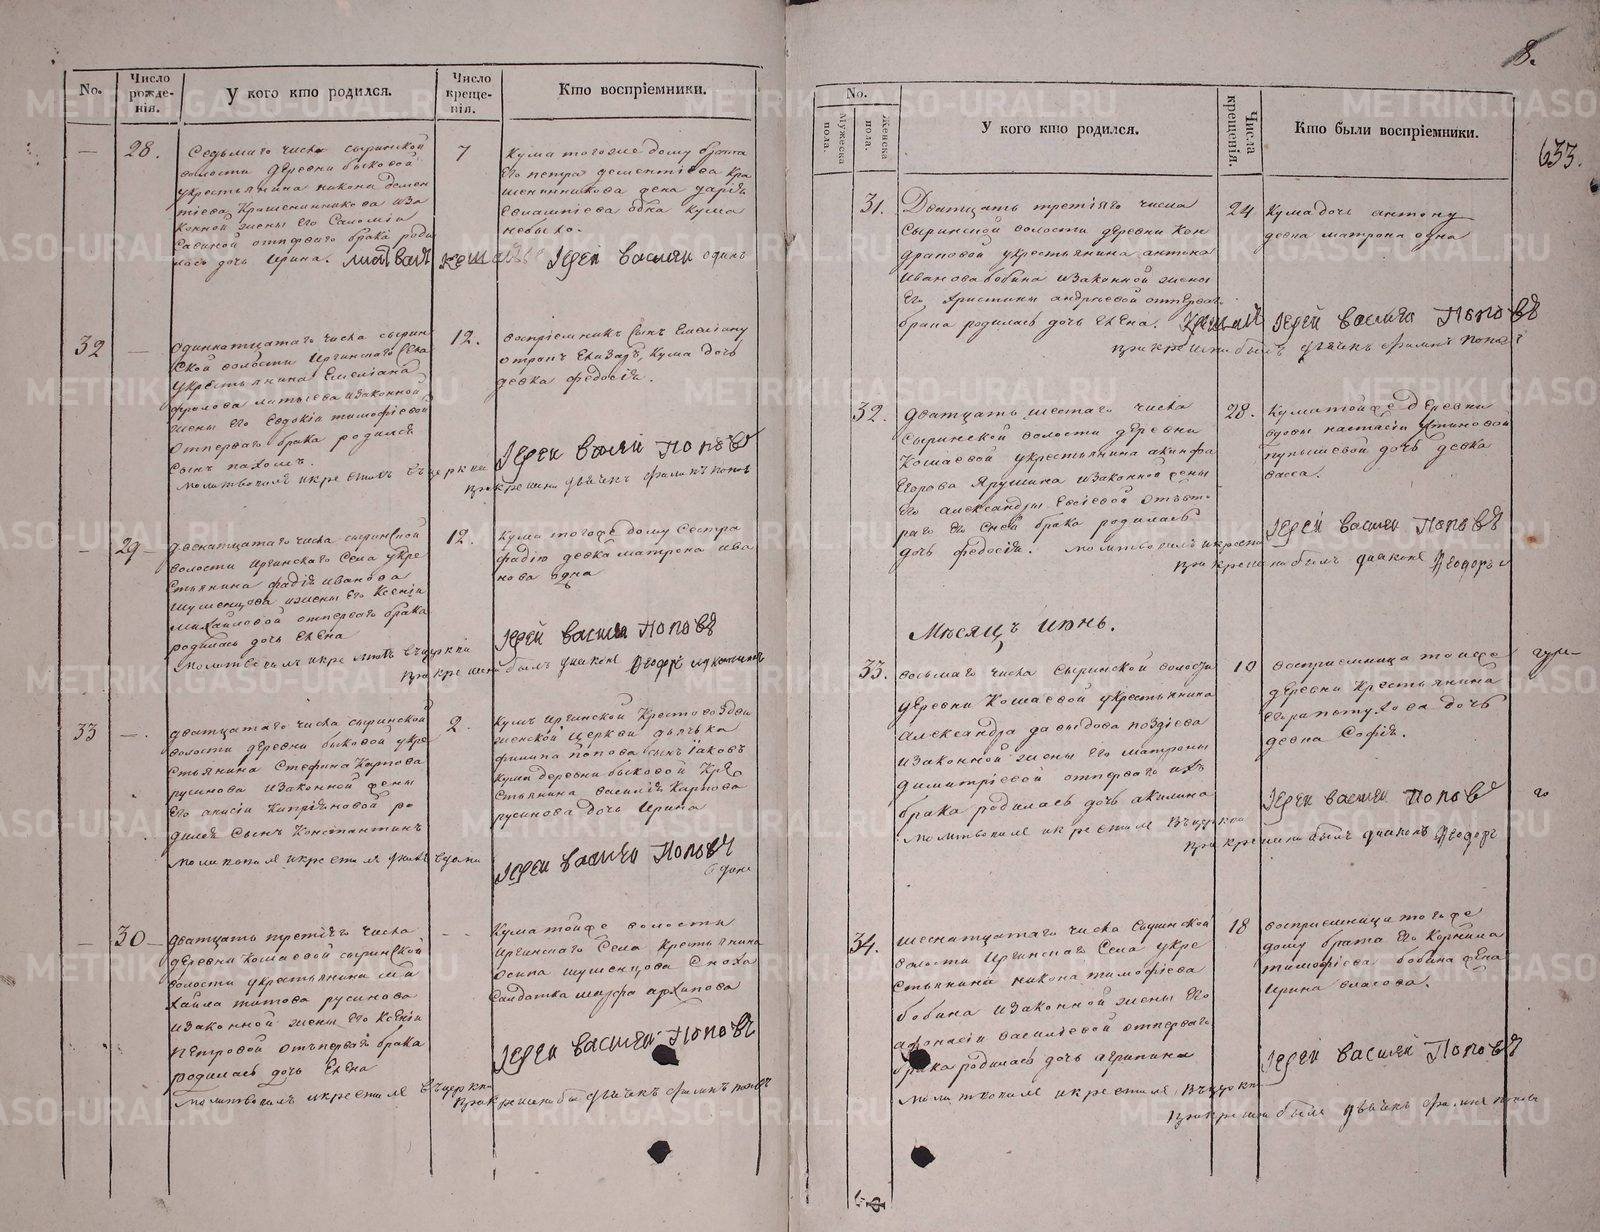 No.
Число рожде-
нія.
У кого кто родился.
Число креще-
нія.
Кто воспріемники.
28.
Седьмаго числа сыринской
волости деревни быковой
укрестьянина никона демен
тіева Крашенинникова иза
конной жены его Саломіи
Савиной отпрваго брака роди
лась дочь Ирина.
7
Кума тогоже дому брата
его петра дементіева кра
шенинникова жена дарія
одна кума
небыло.
Іерей Василей один
32
одиннатцатаго числа сырин
ской волости Иргинскаго села
укрестьянина Емеліана
фролова изаконной
жены его Евдокіи тимофіевой
отперваго брака родился
сынъ пахомъ.
молитвовалъ икрестилъ вцеркви
12.
воспріемникъ сынъ Емеліану
отрокъ Елизаръ, Кума дочь
девка федосія.
Іерей Василій Поповъ
прикрещении дьячекъ филипъ поповъ
29
двенатцатаго числа сыринской
волости иргинскаго Села укре
стьянина фадія иванова
шушенцова ижены его Ксеніи
михайловой отперваго брака
родилась дочь елена
12.
Кума тогоже дому сестра
фадію девка матрона ива
нова одна
Іерей Василей Поповъ
прикрещении былъ диаконъ
33
дватцатаго числа сыринской
волости деревни быковой укре
стьянина Стефана Карпова
русинова изаконной жены
его анисіи Кипріяновой ро
дился сынъ Константинъ
2.
Кумъ иргинской Крестовоздви
женской церкви дьячька
филипа попова сынъ іаковъ
кума деревни быковой Кре
стьянина василія Карпова
русинова дочь Ирина
Іерей Василей Поповъ
одинъ
30
дватцать третіяго числа
деревни Кошаевой сыринской
волости укрестьянина ми
хайла титова русинова
изаконной жены его Ксеніи
петровой отъперваго брака
родилась дочь Елена
молитвовалъ икрестилъ вцеркви
Кума тойже волости
иргинскаго Села крестьянина
осипа шушенцова Сноха
Салдатка марфа архипова
Іерей Василей Поповъ
прикрещении былъ дьячекъ филипъ поповъ
8.
633.
No.
Мужеска
пола.
Женска
пола.
У кого кто родился.
Числа
крещенія.
Кто были воспріемники.
31.
Дватцать третіяго числа
Сыринской волости деревни Кон
драповой укрестьянина антона
иванова бобина изаконной жены
его Христины андреевой отперваго
брака родилась дочь елена.
24
Кума дочь антону
девка матрона одна
Іерей Василей Поповъ
прикрещении былъ дьячекъ филипъ поповъ
32.
дватцать шестаго числа
сыринской волости деревни
Кошаевой укрестьянина акинфа
Егорова Ярушина изаконной жены
его александры Евсіевой отъвто
раго его сней брака родилась
дочь федосія.
28.
Кума тойже деревни
вдовы настасіи Устиновой
пупышевой дочь девка
васса.
Іерей Василей Поповъ
прикрещении былъ диаконъ Ѳеодоръ
Мѣсяцъ Июнь.
33.
восьмаго числа Сыринской волости
деревни Кошаевой укрестьянина
Александра давыдова поздіева
изаконной жены его матроны
димитріевой отперваго ихъ
брака родилась дочь акилина
молитвовалъ икрестилъ вцеркви
10
восприемница тойже
деревни Крестьянина
дочь
девка Софія.
Іерей Василей Поповъ
прикрещении былъ диаконъ Ѳеодоръ
34.
шеснатцатаго числа Сыринской
волости Иргинскаго Села укре
стьянина никона тимофіева
бобина изаконной жены его
афонасіи василіевой отперваго
брака родилась дочь агрипина
молитвовалъ икрестилъ вцеркви
18
восприемница тогоже
дому брата его Корнила
тимофіева бобина жена
Ирина власова.
Іерей Василей Поповъ
прикрещении былъ дьячекъ филипъ поповъ
METRIKI.GASO-URAL.RU